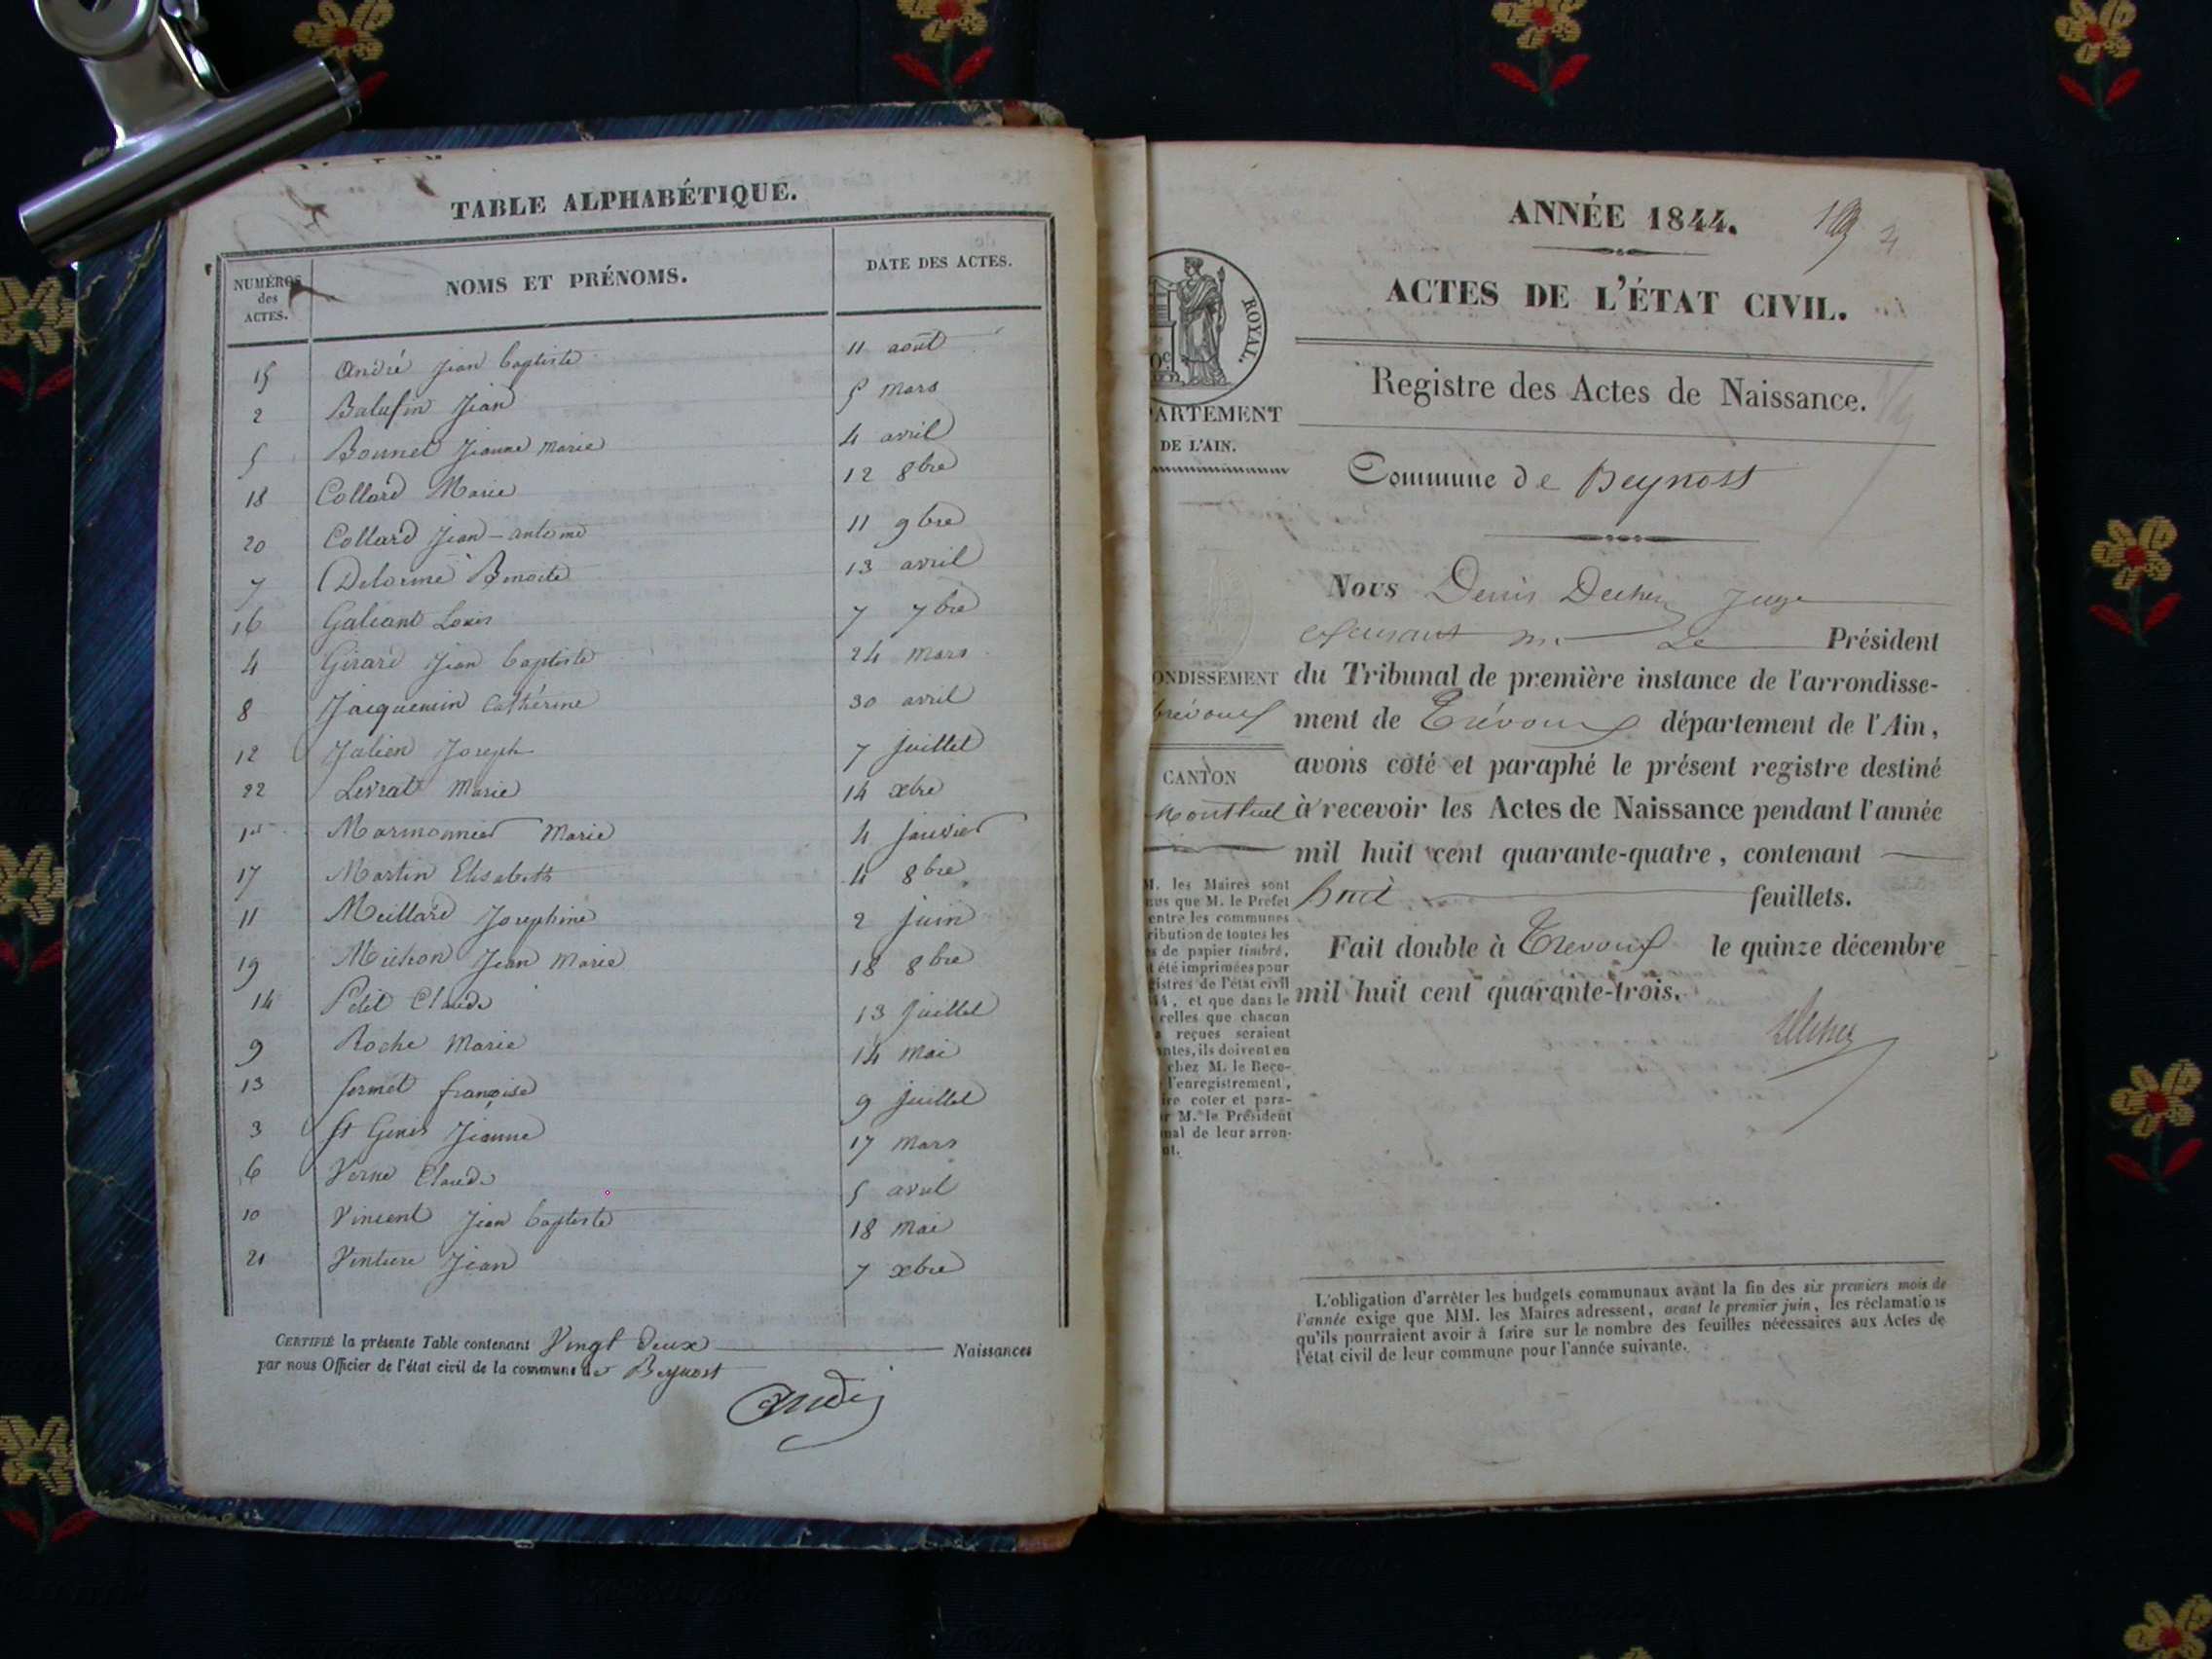 TABLE ALPHABÉTIQUE.
NUMÉROS des ACTES. NOMS ET PRÉNOMS. DATE DES ACTES.
15 André Jean baptiste 11 août
2 Balufin Jean 5 mars
5 Bonnet Jeanne Marie 4 avril
18 Collard Marie 12 8bre
20 Collard Jean-antoine 11 9bre
7 Delorme Benoite 13 avril
16 Galiant Louis 7 7bre
4 Girard Jean baptiste 24 mars
8 Jacquemin Cathérine 30 avril
12 Julien Joseph 7 juillet
22 Levrat Marie 14 xbre
1er Marmonnier Marie 4 janvier
17 Martin Elisabeth 4 8bre
11 Meillard Josephine 2 juin
19 Michon Jean Marie 18 8bre
14 Petit Claude 13 juillet
9 Roche Marie 14 mai
13 Sermet françoise 9 juillet
3 St Genis Jeanne 17 mars
6 Verne Claude 5 avril
10 Vincent Jean baptiste 18 mai
21 Vinture Jean 7 xbre
CERTIFIÉ la présente Table contenant Vingt deux Naissances
par nous Officier de l'état civil de la commune de Beynost
André
ANNÉE 1844.
ACTES DE L'ÉTAT CIVIL.
ROYAL.
Registre des Actes de Naissance.
PARTEMENT
DE L'AIN.
Commune de Beynost
Nous Denis Juge
Le Président
ONDISSEMENT du Tribunal de première instance de l'arrondisse-
trévoux ment de Trévoux département de l'Ain,
avons coté et paraphé le présent registre destiné
CANTON
Montluel à recevoir les Actes de Naissance pendant l'année
mil huit cent quarante-quatre, contenant
huit feuillets.
Fait double à Trevoux le quinze décembre
mil huit cent quarante-trois.
M. les Maires sont
que M. le Préfet
entre les communes
ribution de toutes les
s de papier timbré,
t été imprimées pour
gistres de l'état civil
44, et que dans le
celles que chacun
reçues seraient
ntes, ils doivent en
chez M. le Rece-
l'enregistrement,
ire coter et para-
r M. le Président
nal de leur arron-
nt.
L'obligation d'arrêter les budgets communaux avant la fin des six premiers mois de
l'année exige que MM. les Maires adressent, avant le premier juin, les réclamations
qu'ils pourraient avoir à faire sur le nombre des feuilles nécessaires aux Actes de
l'état civil de leur commune pour l'année suivante.